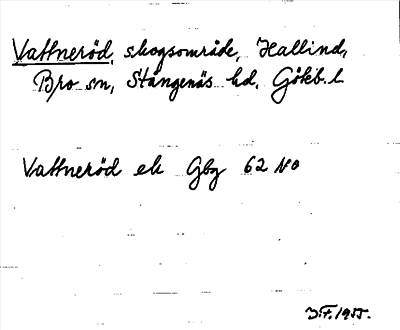 Vattneröd, skogsområde, Hallind,
Bro sn, Stångenäs hd, Gökb. l.
Vattneröd ek Gbg 62 NO
J.F. 1955.